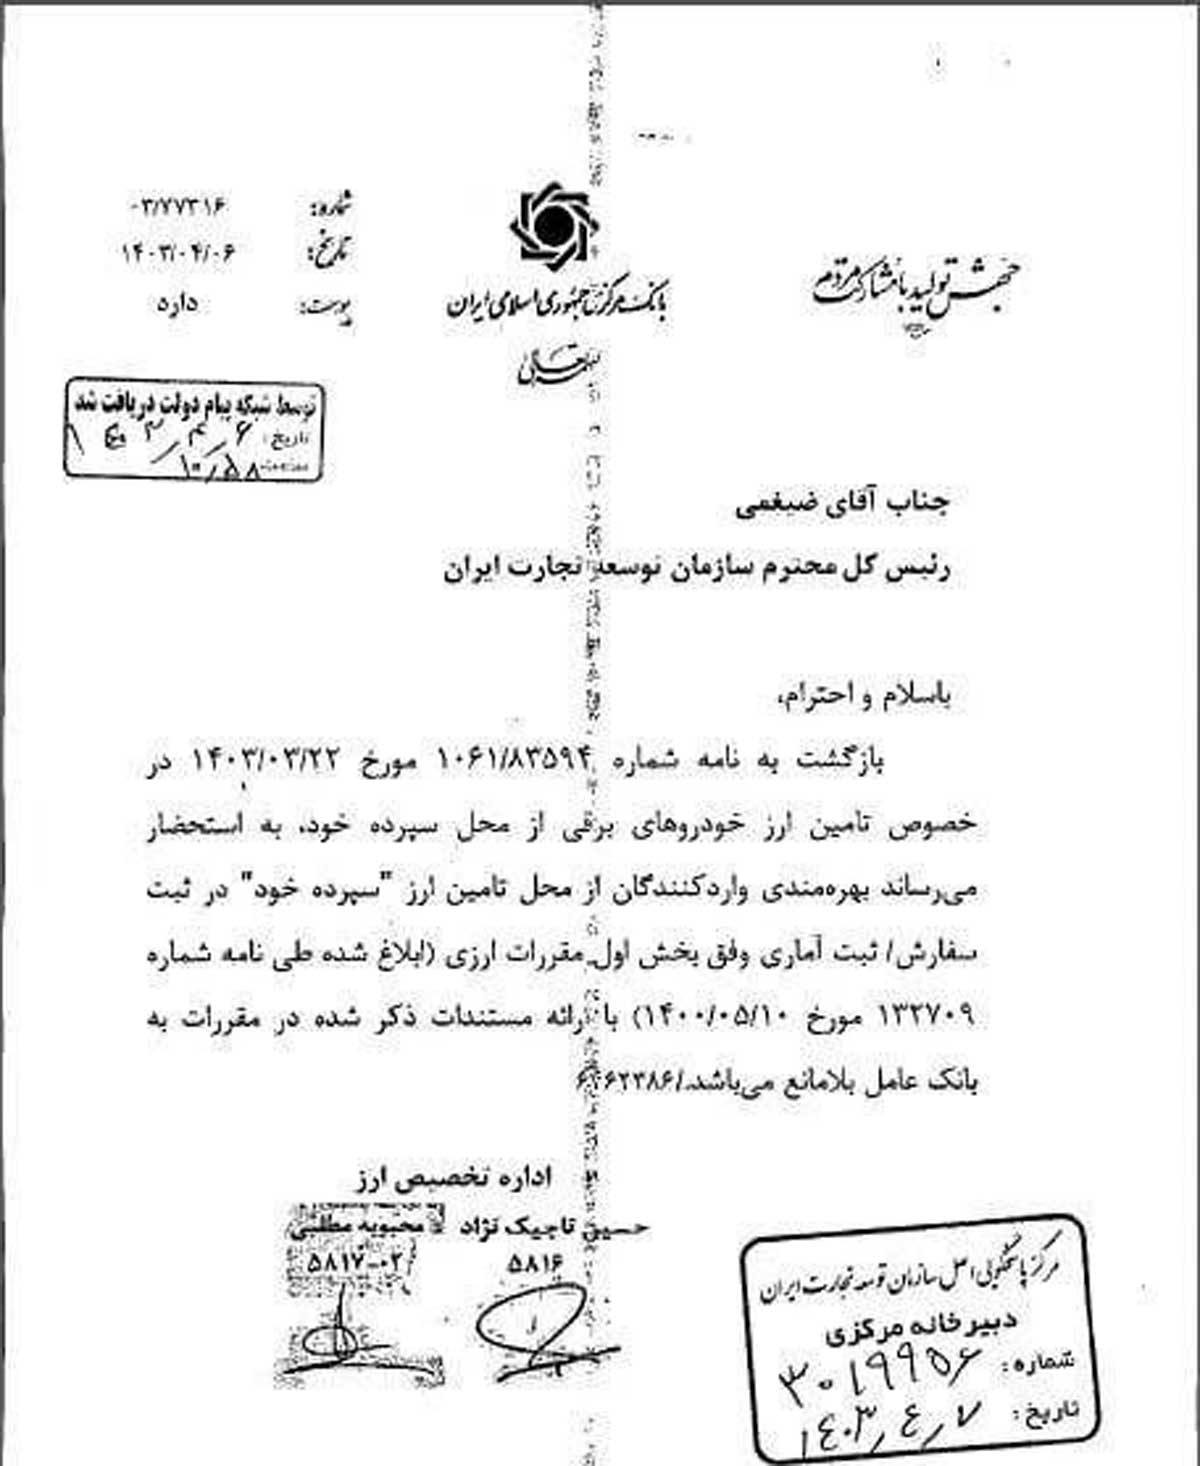 شماره: ۰۳/۷۷۳۱۶
تاریخ: ۱۴۰۳/۰۴/۰۶
پیوست: دارد
بانک مرکزی جمهوری اسلامی ایران
بسمه تعالی
جهش تولید با مشارکت مردم
توسط شبکه پیام دولت دریافت شد
تاریخ: ۱۴۰۳/۴/۶
ساعت: ۱۰/۵۸
جناب آقای ضیغمی
رئیس کل محترم سازمان توسعه تجارت ایران
باسلام و احترام،
بازگشت به نامه شماره ۱۰۶۱/۸۳۵۹۴ مورخ ۱۴۰۳/۰۳/۲۲ در
خصوص تامین ارز خودروهای برقی از محل سپرده خود، به استحضار
می‌رساند بهره‌مندی واردکنندگان از محل تامین ارز "سپرده خود" در ثبت
سفارش/ ثبت آماری وفق بخش اول مقررات ارزی (ابلاغ شده طی نامه شماره
۱۳۲۷۰۹ مورخ ۱۴۰۰/۰۵/۱۰) با ارائه مستندات ذکر شده در مقررات به
بانک عامل بلامانع می‌باشد./
اداره تخصیص ارز
حسین تاجیک نژاد محبوبه مطلبی
۵۸۱۶ ۵۸۱۷-۰۲
مرکز پاسخگویی اصل سازمان توسعه تجارت ایران
دبیرخانه مرکزی
شماره: ۳۰۱۹۹۵۶
تاریخ: ۱۴۰۳/۴/۷